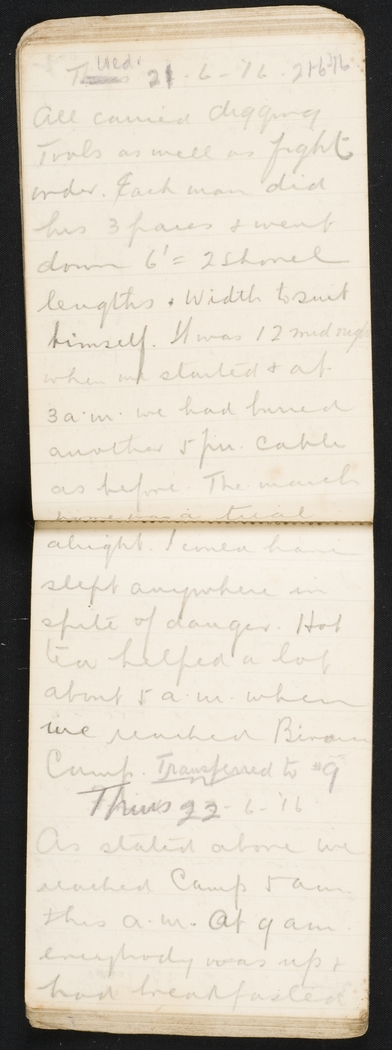 Wed. 21-6-'16. 21-6-16
All carried digging
Tools as well as fight
order. Each man did
his 3 paces & went
down 6' = 2 Shovel
lengths & Width to suit
himself. It was 12 midnigh
when we started & at
3 a.m. we had buried
another 5 pr. cable
as before. The march
home was a treat
alright. I could have
slept anywhere in
spite of danger. Hot
tea helped a lot
about 5 a.m. when
we reached
Camp. Transferred to #9
Thurs 22-6-'16
As stated above we
reached Camp 5 am.
this a.m. At 9 am.
everybody was up &
had breakfasted